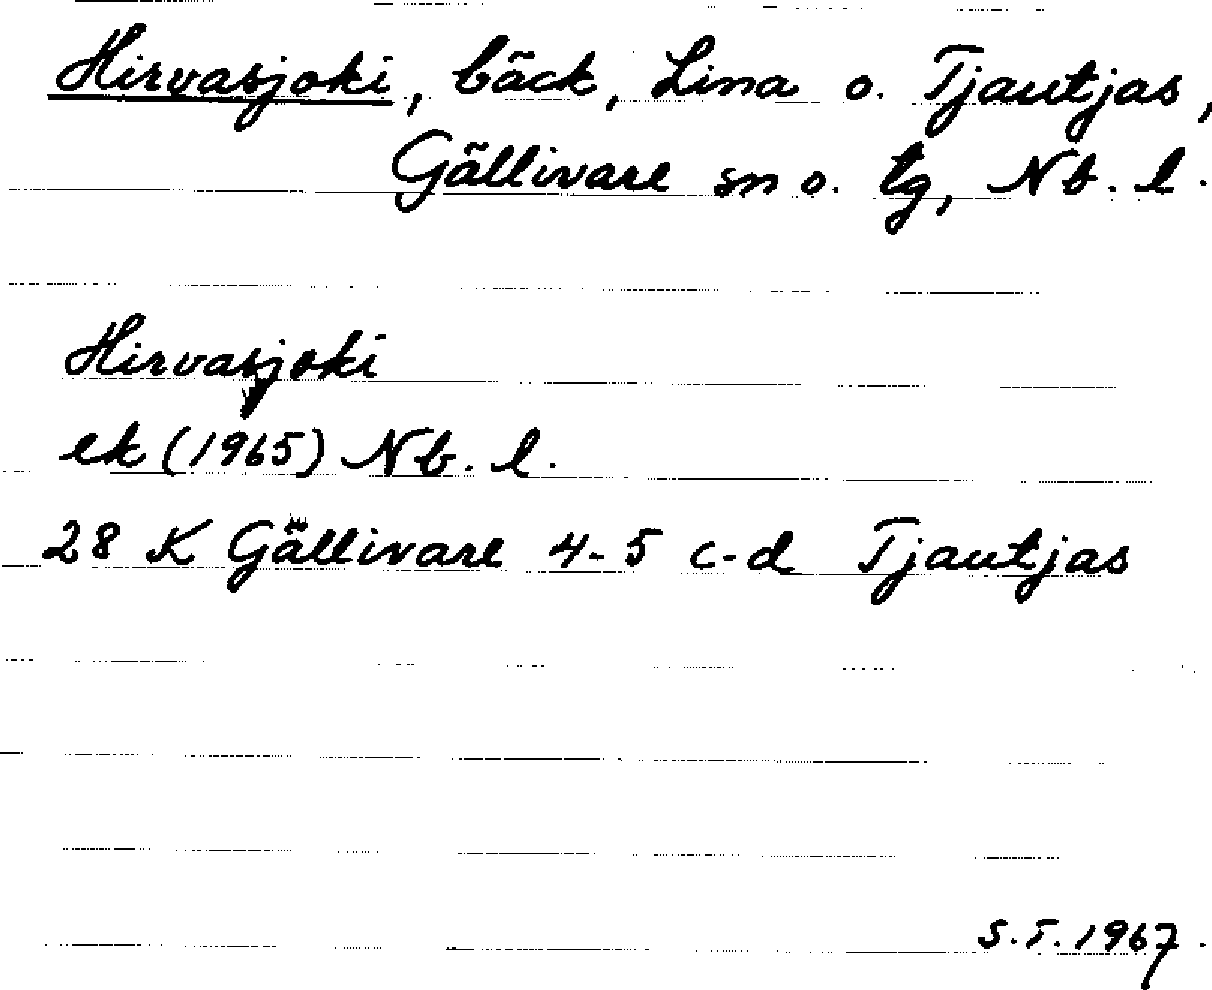 Hirvasjoki, bäck, Lina o. Tjautjas,
Gällivare sn o. tg, Nb. l.
Hirvasjoki
ek (1965) Nb. l.
28 K Gällivare 4-5 c-d Tjautjas
S.T. 1967.